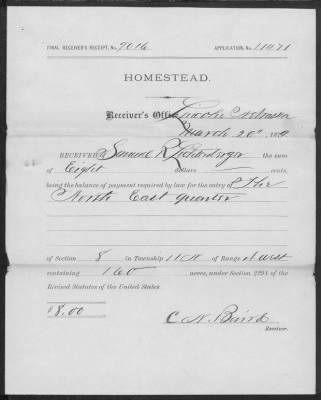 FINAL RECEIVER'S RECEIPT, No. 9016 APPLICATION, No. 11971
HOMESTEAD.
Receiver's Office, Lincoln Nebraska
March 20", 1879
RECEIVED of Samuel R Lichtenberger the sum
of Eight dollars — cents,
being the balance of payment required by law for the entry of The
North East quarter
of Section 8 in Township 11 N of Range West
containing 160 acres, under Section 2291 of the
Revised Statutes of the United States.
$8.00
C. N. Baird
Receiver.